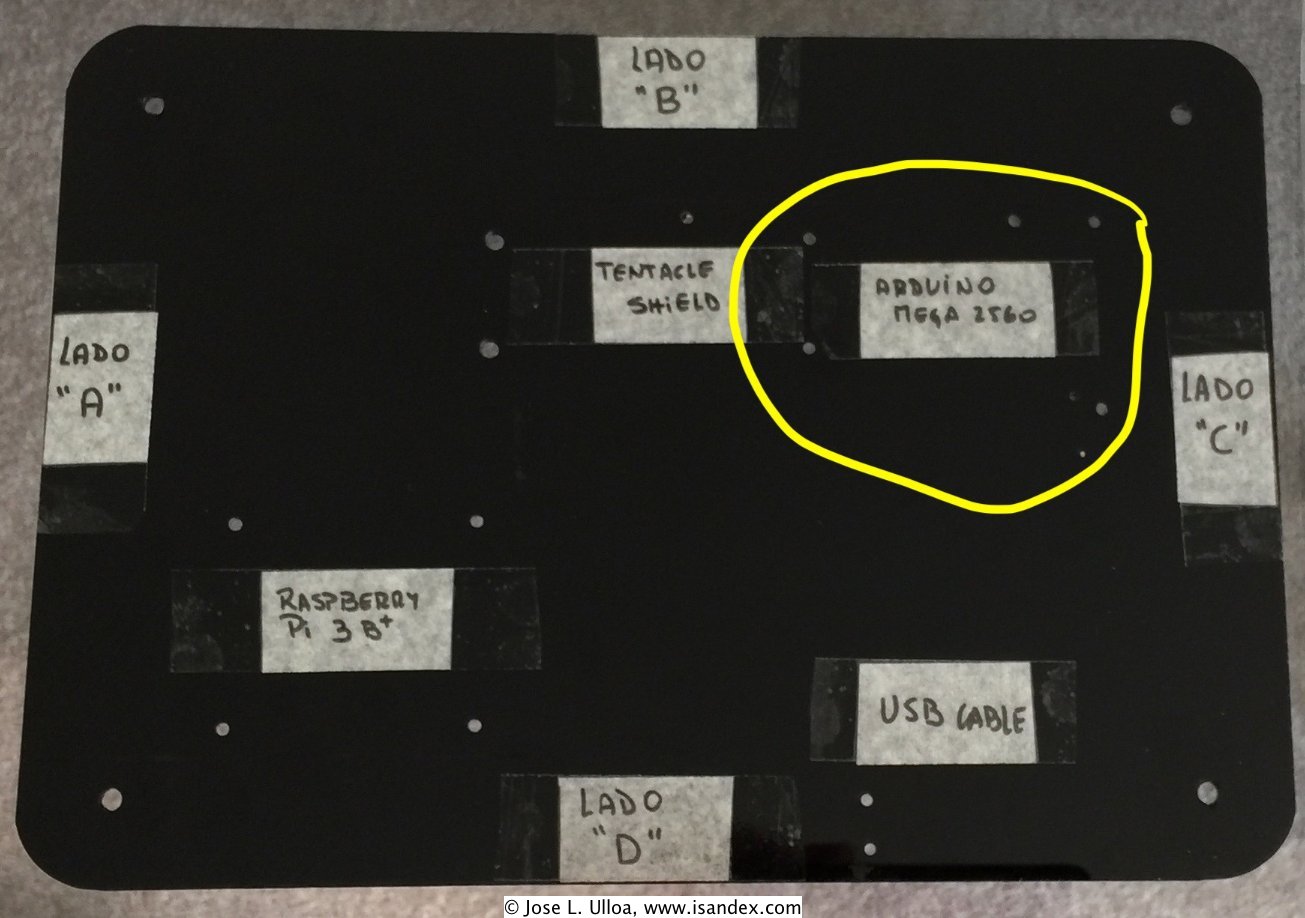 LADO
"B"
TENTACLE
SHiELD
ARDUiNO
MEGA 2560
LADO
"A"
LADO
"C"
RASPBERRY
Pi 3 B+
USB CABLE
LADO
"D"
© Jose L. Ulloa, www.isandex.com